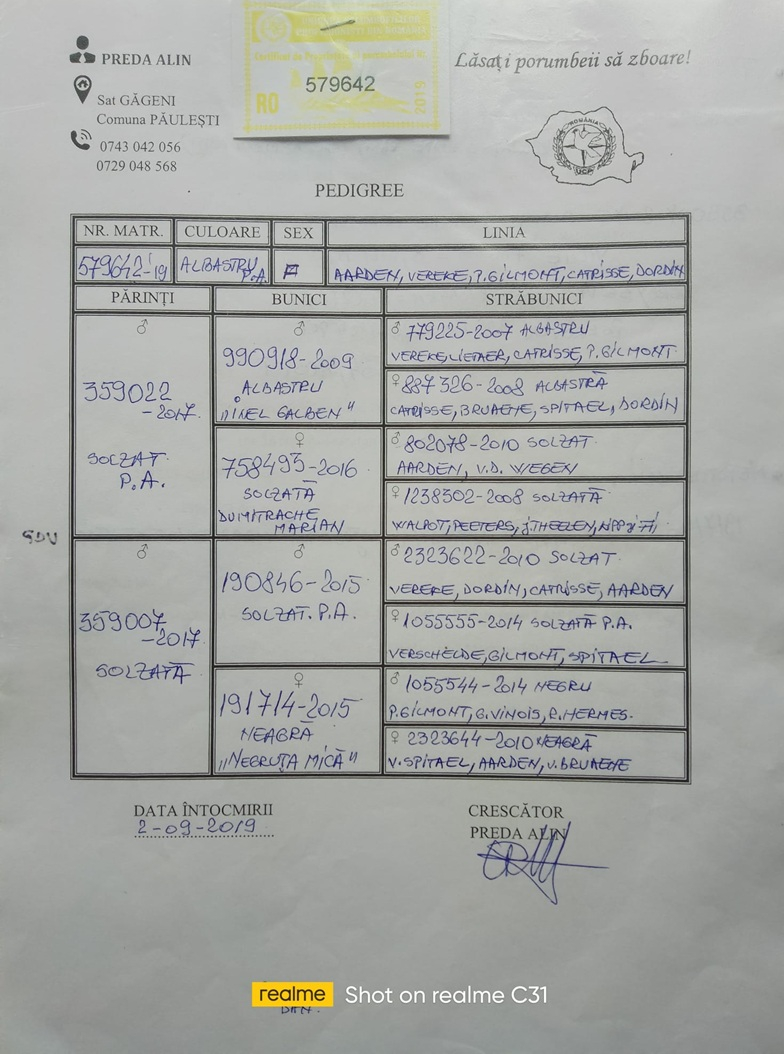 PREDA ALIN
Sat GĂGENI
Comuna PĂULEȘTI
0743 042 056
0729 048 568
579642
RO
2019
Lăsați porumbeii să zboare!
ROMÂNIA
PEDIGREE
NR. MATR. CULOARE SEX LINIA
579642-19 ALBASTRU P.A. F AARDEN, VEREKE, P.GILMONT, CATRISSE, DORDIN
PĂRINȚI BUNICI STRĂBUNICI
♂
359022
-2017.
SOLZAT
P.A.
♂
990918-2009
ALBASTRU
„INEL GALBEN"
♀
758493-2016
SOLZATĂ
DUMITRACHE
MARIAN
♂ 779225-2007 ALBASTRU
VEREKE, LIETAER, CATRISSE, P.GILMONT
♀ 887326-2008 ALBASTRĂ
CATRISSE, BRUAENE, SPITAEL, DORDIN
♂ 802078-2010 SOLZAT
AARDEN, V.D. WEGEN
♀ 1238302-2008 SOLZATĂ
WALPOT, PEETERS, J.THEELEN,
♂
359007
-2017
SOLZATĂ
♂
190846-2015
SOLZAT. P.A.
♀
191714-2015
NEAGRĂ
„NEGRUȚA MICĂ"
♂ 2323622-2010 SOLZAT
VEREKE, DORDIN, CATRISSE, AARDEN
♀ 1055555-2014 SOLZATĂ P.A.
VERSCHELDE, GILMONT, SPITAEL
♂ 1055544-2014 NEGRU
P.GILMONT, G.VINOIS, R.HERMES.
♀ 2323644-2010 NEAGRĂ
V.SPITAEL, AARDEN, V.BRUAENE
DATA ÎNTOCMIRII
2-09-2019
CRESCĂTOR
PREDA ALIN
realme Shot on realme C31